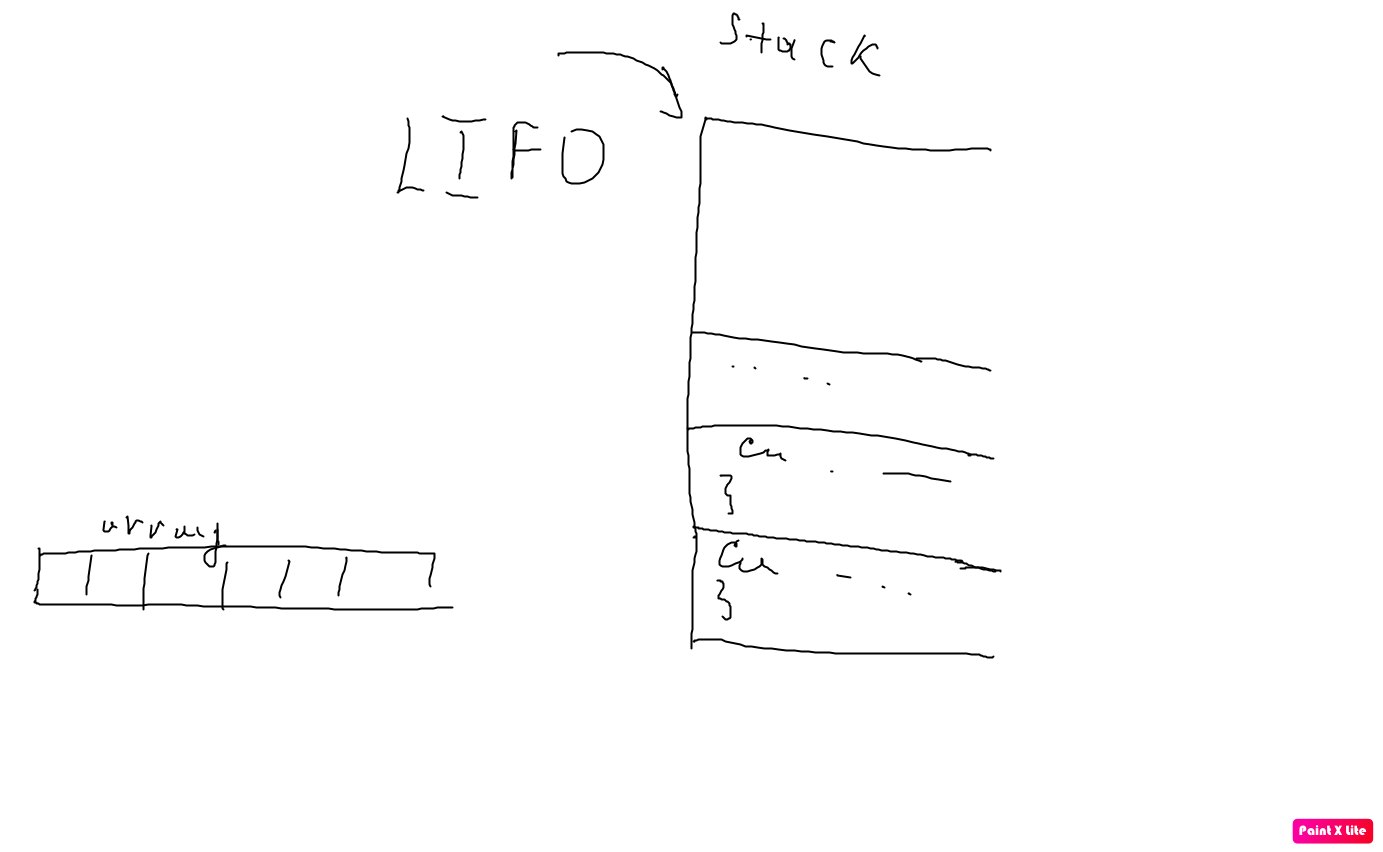 Stack
LIFO
....
}
}
array
Paint X Lite